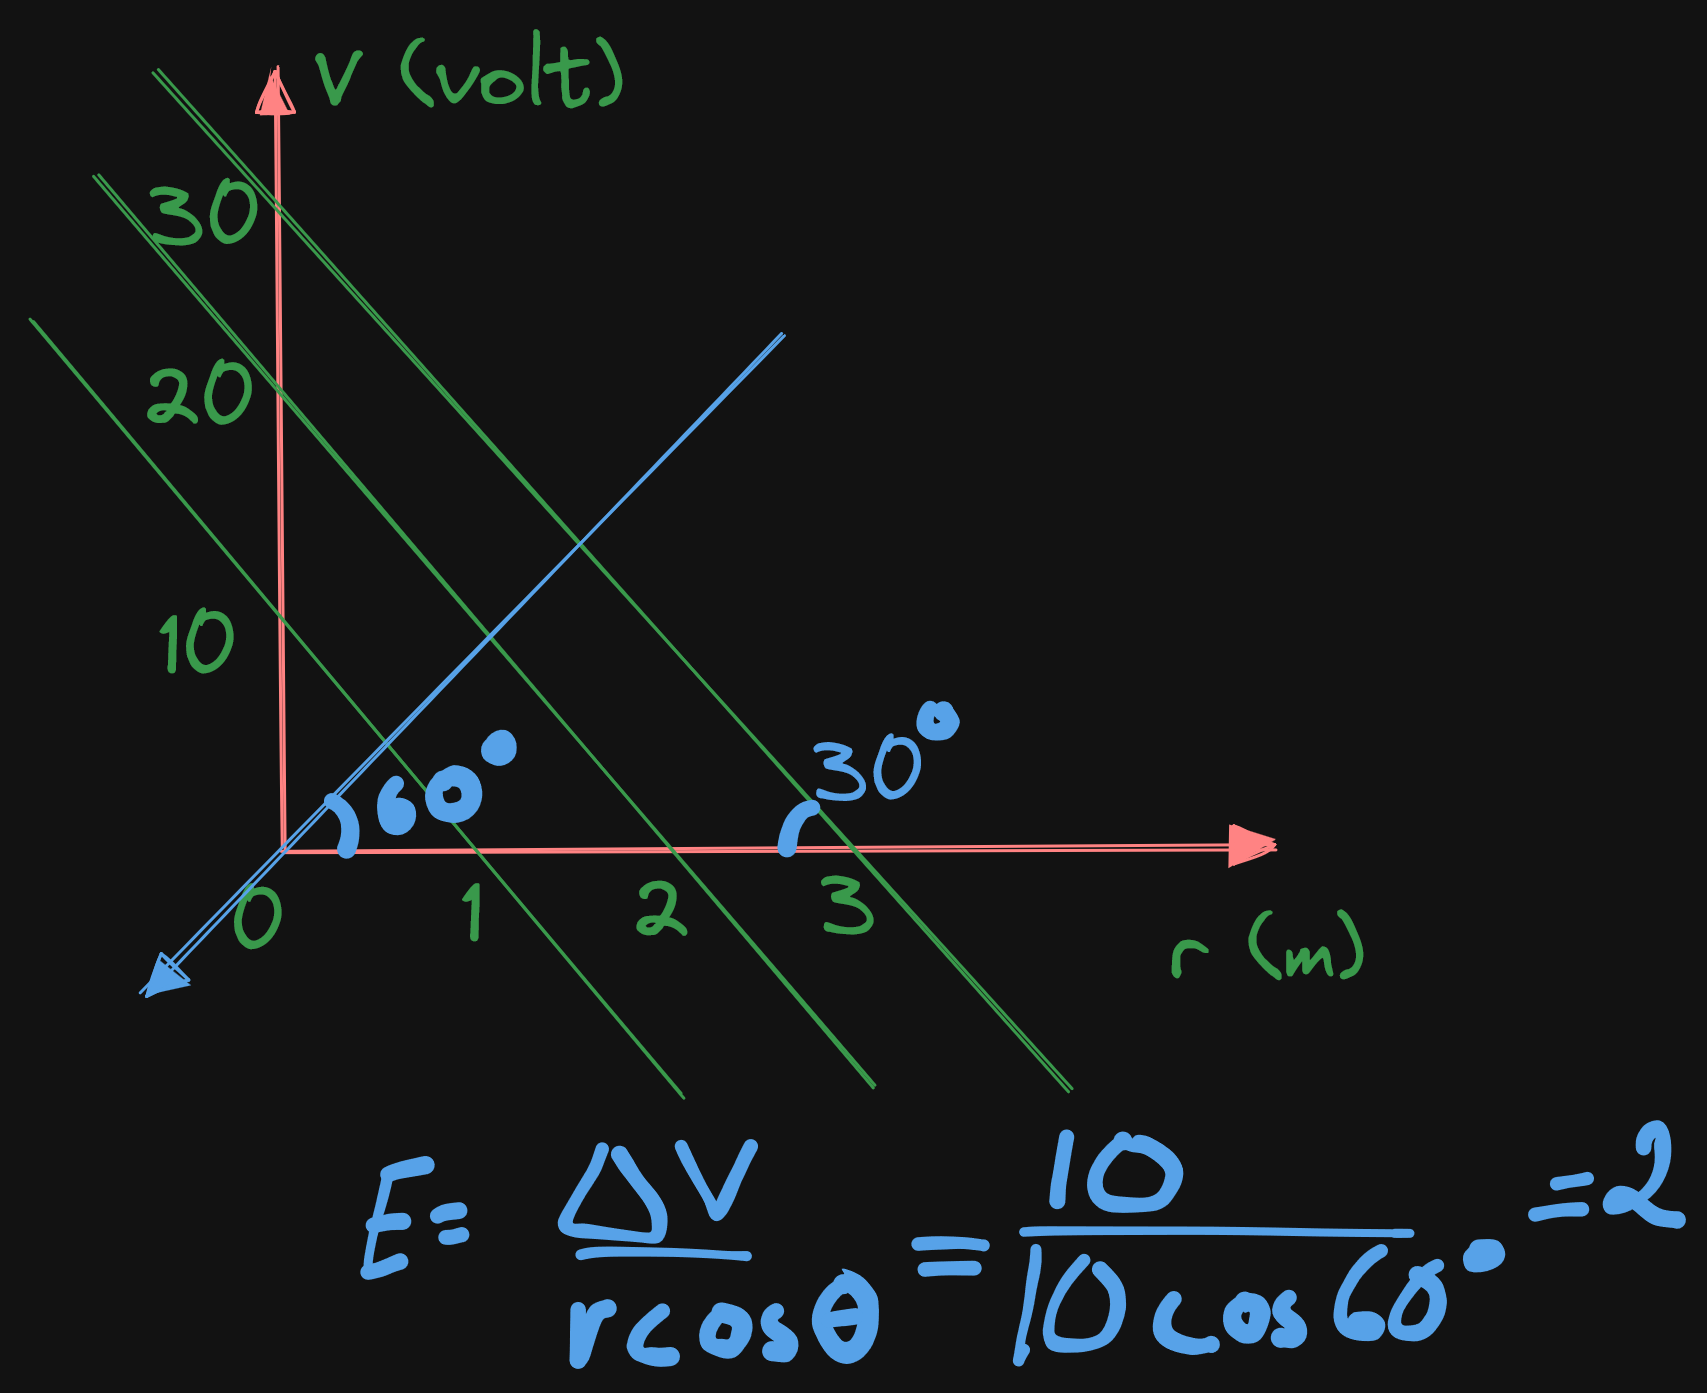 V (volt)
30
20
10
60°
30°
0 1 2 3
r (m)
E = ΔV / r cosθ = 10 / 10 cos 60° = 2